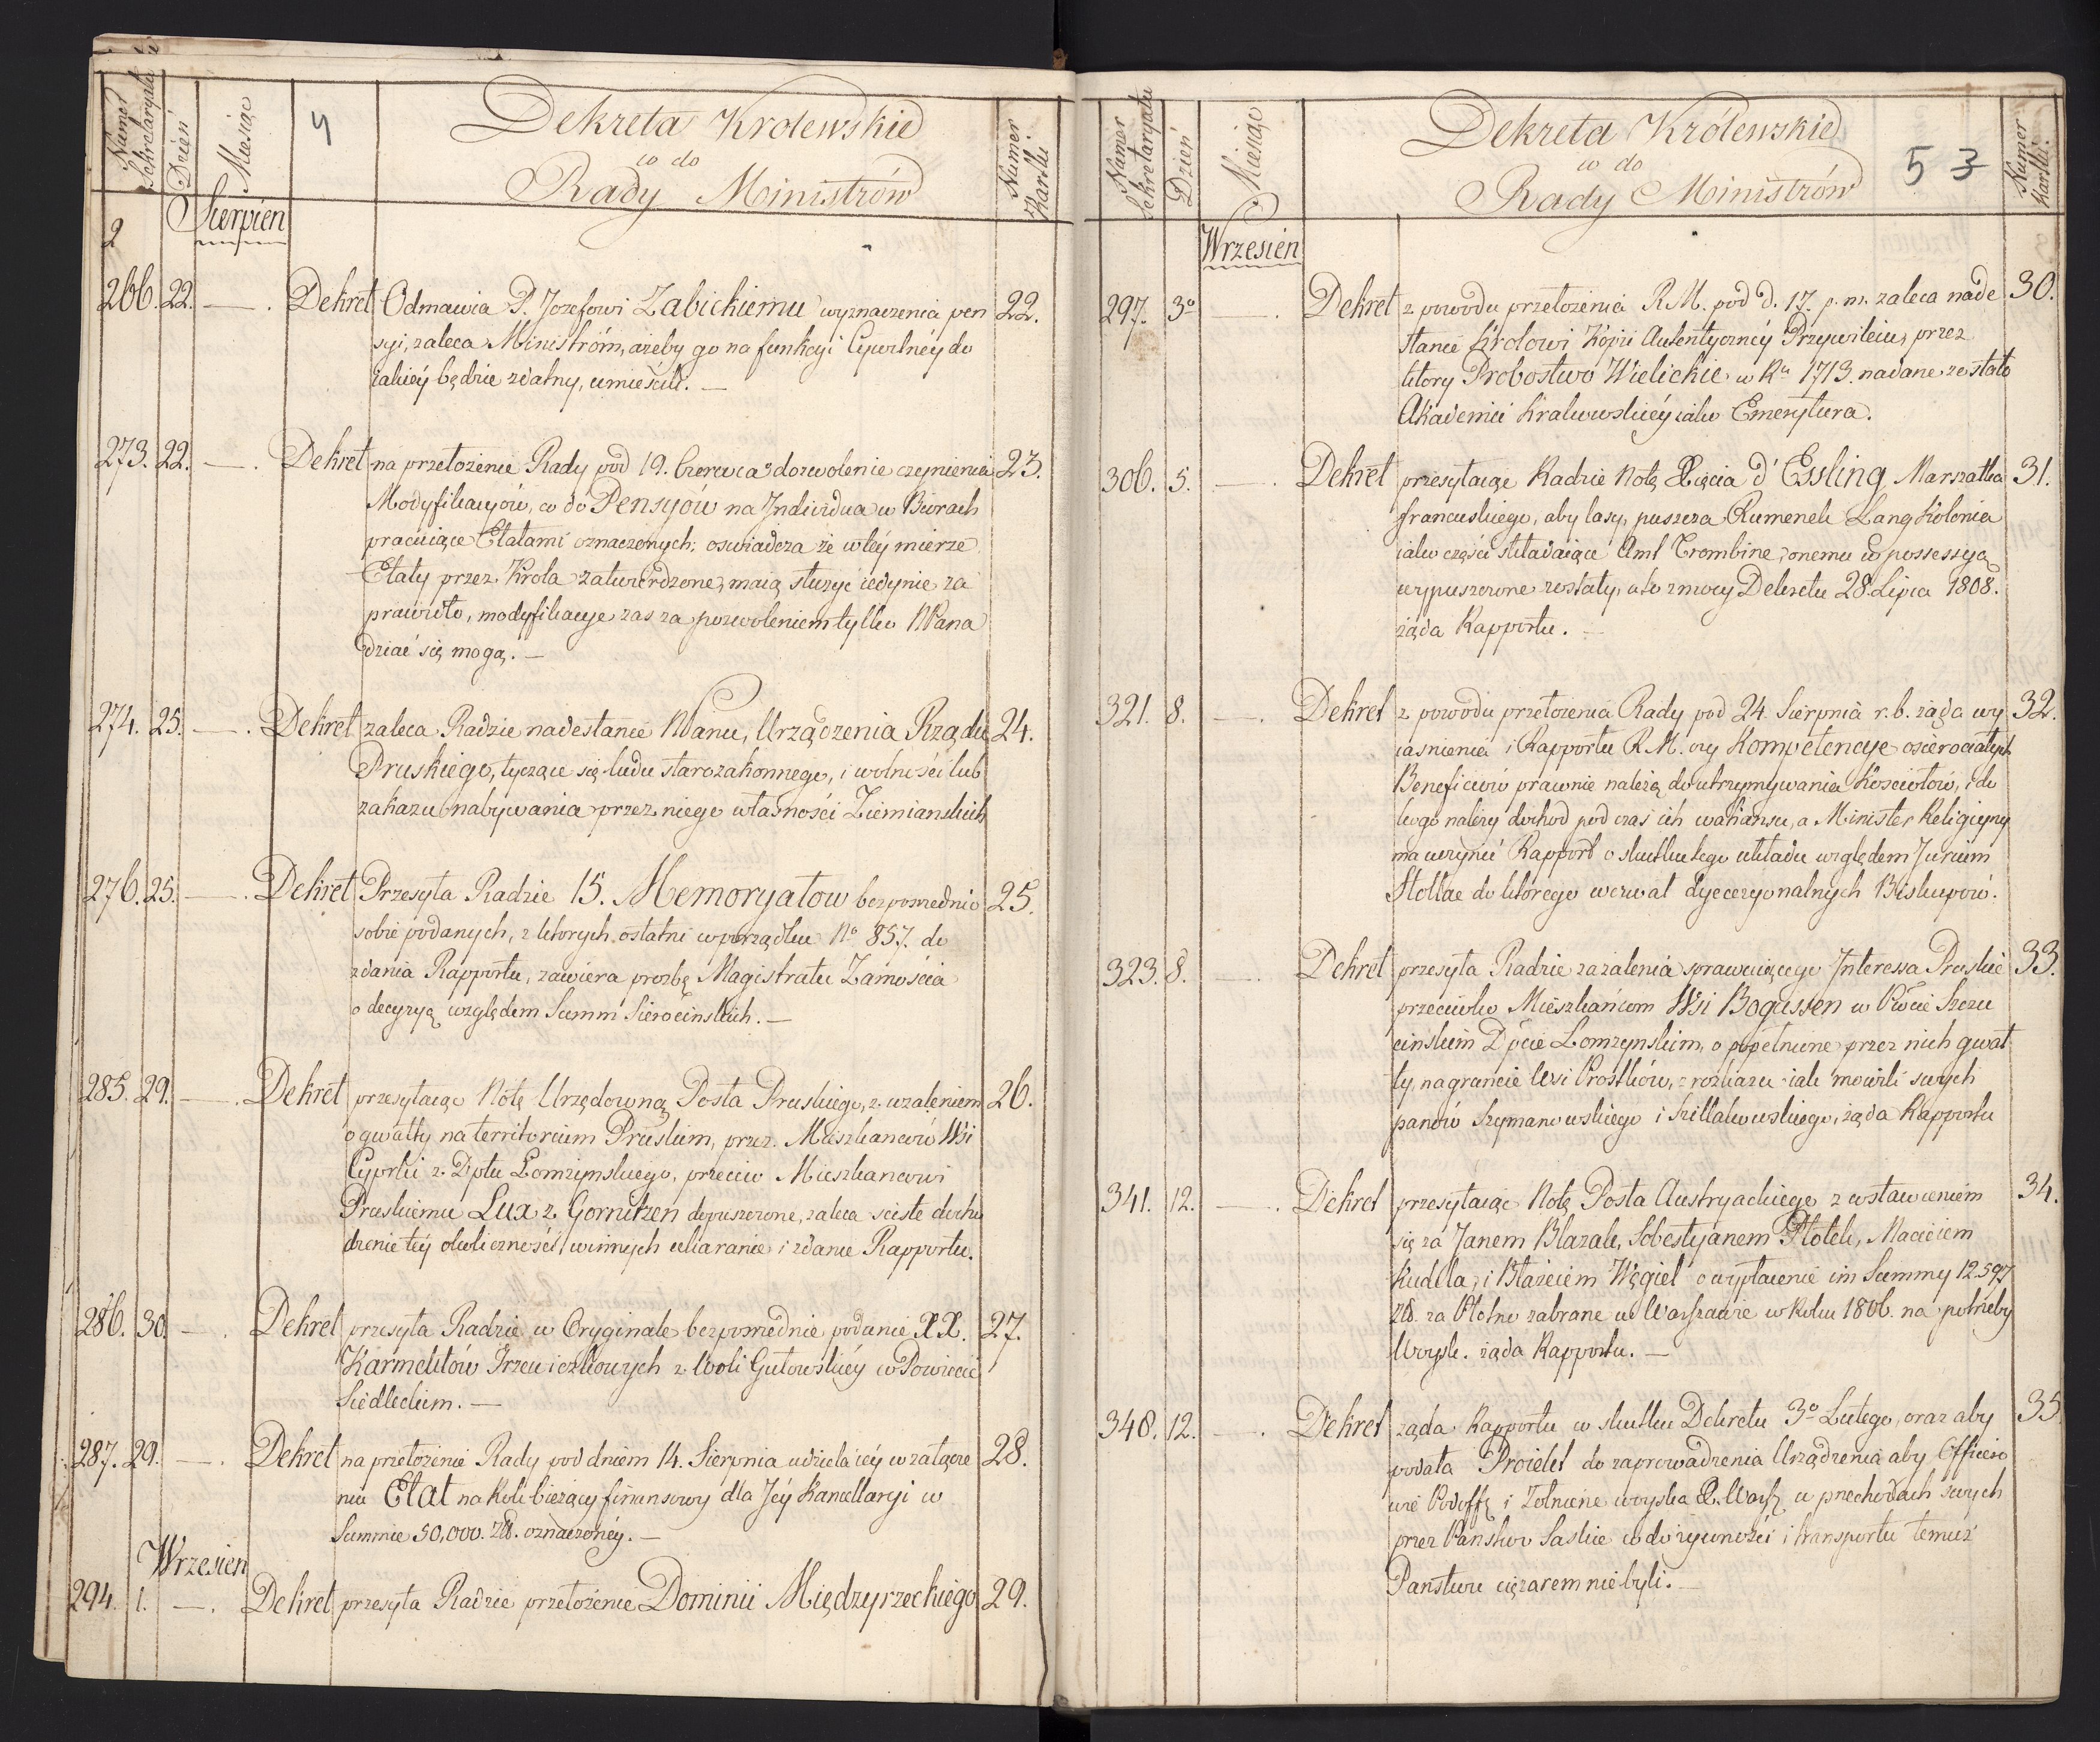 Numer Sekretaryatu
Dzień
Miesiąc
4
Dekreta Krolewskie
co do
Rady Ministrów
Numer Kartki
2
Sierpień
266. 22. — . Dekret Odmawia P. Jozefowi Zabickiemu wyznaczenia pen 22.
syi, zaleca Ministróm, ażeby go na funkcyi Cywilnéy do
iakiéy będzie zdatny, umieścili. —
273. 22. — . Dekret na przełożenie Rady pod 19. Czerwca o dozwolenie czynienia 23.
Modyfikacyów, co do Pensyów na Jndividua w Biórach
pracuiące Etatami oznaczonych; oswiadcza że w téy mierze
Etaty przez Krola zatwierdzone, maią służyć iedynie za
prawidło, modyfikacye zas za pozwoleniem tylko NPana
dziać się mogą. —
274. 25. — . Dekret zaleca Radzie nadesłanie NPanu, Urządzenia Rządu 24.
Pruskiego, tyczące się ludu starozakonnego, i wolności lub
zakazu nabywania przez niego własności Ziemianskich
276. 25. — . Dekret Przesyła Radzie 15. Memoryałow bezposrednio 25.
sobie podanych, z ktorych ostatni w porządku No 857. do
zdania Rapportu, zawiera prozbę Magistratu Zamościa
o decyzyą względem Summ Sierocinskich. —
285. 29. — . Dekret przesyłaiąc Notę Urzędowną Posła Pruskiego, z użaleniem 26.
o gwałty na territorium Pruskim, przez Mieszkancow Wsi
Cyprki z Dptu Łomżynskiego, przeciw Mieszkancowi
Pruskiemu Lux z Gornitzen dopuszczone, zaleca scisłe docho
dzenie téy okoliczności, winnych ukaranie i zdanie Rapportu.
286. 30. — . Dekret przesyła Radzie w Oryginale bezposrednie podanie XX. 27.
Karmelitów Trzewiczkowych z Woli Gułowskiéy w Powiecie
Siedleckim. —
287. 29. — . Dekret na przełożenie Rady pod dniem 14. Sierpnia udziela iéy w załącze 28.
niu Etat na Rok bieżący finansowy dla Jéy Kancellaryi w
Summie 50,000. Zł. oznaczonéy. —
Wrzesień
294. 1. — . Dekret przesyła Radzie przełożenie Dominii Międzyrzeckiego 29.
Numer Sekretaryatu
Dzień
Miesiąc
Dekreta Królewskie
co do
Rady Ministrów
5 3
Numer Kartki
Wrzesień
297. 3o — . Dekret z powodu przełożenia R.M. pod d. 17. p. m. zaleca nade 30.
słanie Królowi Kópii Autentycznéy Przywileiu, przez
ktory Probostwo Wielickie w Rku 1713. nadane zostało
Akademii Krakowskiéy iako Emerytura.
306. 5. — . Dekret przesyłaiąc Radzie Notę Xięcia d'Essling Marszałka 31.
francuskiego, aby lasy, puszcza Rumenek Lang Kolonia
iako części składaiące Amt Trombine, onemu w possessyą
wypuszczone zostały, a to z mocy Dekretu 28. Lipca 1808.
żąda Rapportu. —
321. 8. — . Dekret z powodu przełożenia Rady pod 24. Sierpnia r. b. żąda wy 32.
iasnienia i Rapportu R.M. czy Kompetencye osierociałych
Beneficiów prawnie należą do utrzymywania Kościołów, i do
kogo należy dochod podczas ich wakansu, a Minister Religiyny
ma uczynić Rapport o skutku tego układu względem Jurium
Stollae do którego wezwał dyecezyonalnych Biskupów.
323. 8. — . Dekret przesyła Radzie zażalenia sprawuiącego Jnteressa Pruskie 33.
przeciwko Mieszkańcom Wsi Bogussen w Płcie Szczu
cinskim Dpcie Łomżynskim, o popełnione przez nich gwał
ty, na gruncie wsi Prostków, z rozkazu iak mowili swych
panów Szymanowskiego i Szillakowskiego, żąda Rapportu
341. 12. — . Dekret przesyłaiąc Notę Posła Austryackiego z wstawieniem 34.
się za Janem Blazak, Sobestyanem Płotek, Macieiem
Kudela, i Błażeiem Węgiel o wypłacenie im Summy 12.597
Zł. za Płótno zabrane w Warszawie w Roku 1806. na potrzeby
Woysk. żąda Rapportu. —
348. 12. — . Dekret żąda Rapportu w skutku Dekretu 3o Lutego, oraz aby 35
podała Proiekt do zaprowadzenia Urządzenia aby Officero
wie Podoffę i Zołnierze woyska X. Warsz. w przechodach swych
przez Państwo Saskie co do żywności i transportu temuż
Państwu ciężarem nie byli. —